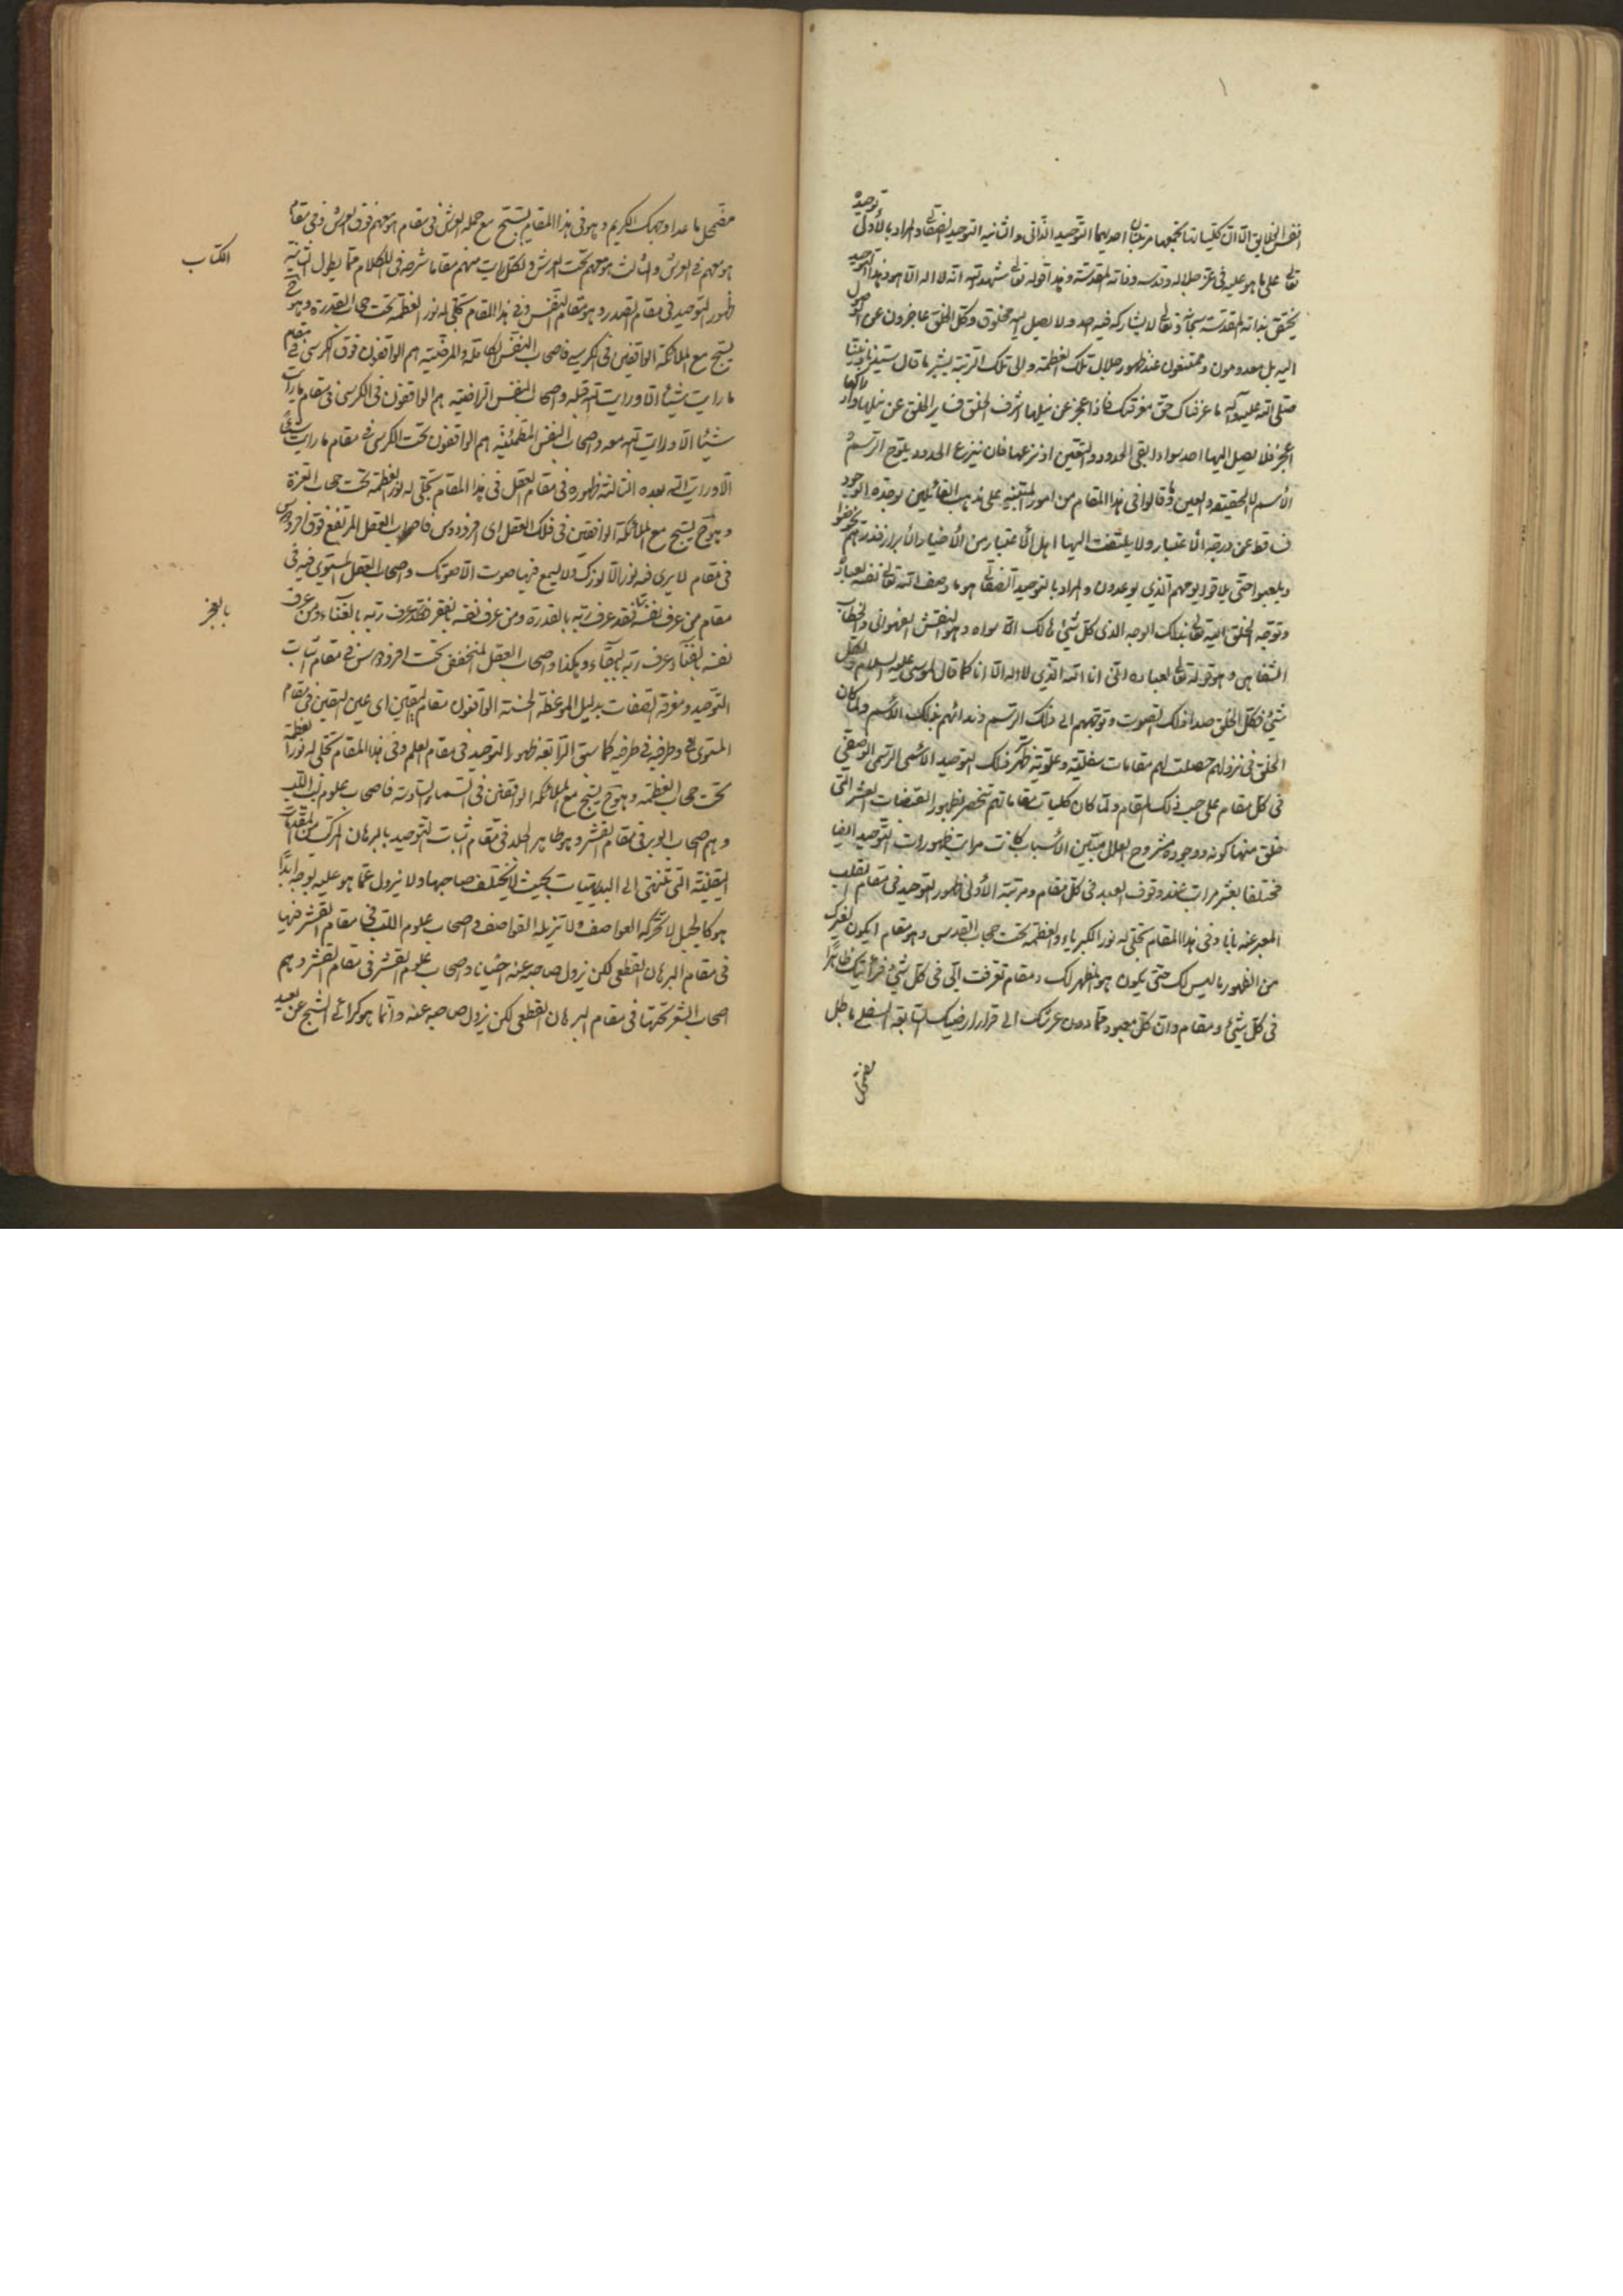 توحيده
انفس الخلايق الا ان كلياتها تجمعها مرتبتان احديهما التوحيد الذاتي والثانية التوحيد الصفاتي والمراد بالأول
تعالى على ما هو عليه في عز جلاله وقدسه وذاته المقدسة وهذا قوله تعالى شهد الله انه لا اله الا هو وهذا التوحيد
يختص بذاته المقدسة سبحانه وتعالى لا يشاركه فيه احد ولا يصل اليه مخلوق وكل الخلق عاجزون عن الوصول
اليه بل معدومون وممتنعون عند ظهور جلال تلك العظمة والى تلك الرتبة يشير ما قال سيدنا ونبينا
صلى الله عليه وآله ما عرفناك حق معرفتك فاذا عجز عن نيلها اشرف الخلق فساير الخلق عن نيلها وادراكها
اعجز فلا يصل اليها احد سواه لبقاء الحدود والتعين اذ نزعها فان ينزع الحدود يلوح الرسم
الأسم لا الحقيقة والعين وما قالوا في هذا المقام من امور المبتنية على مذهب القائلين بوحدة الوجود
فساقط عن درجة الأعتبار ولا يلتفت اليها اهل الأعتبار من الأخيار والأبرار فذرهم يخوضوا
ويلعبوا حتى يلاقوا يومهم الذي يوعدون والمراد بالتوحيد الصفاتي هو ما وصف الله تعالى نفسه لعباده
وتوجه الخلق اليه تعالى بذلك الوجه الذي كل شيء هالك الا سواه وهو النقش الفهواني والخطاب
الشفاهي وهو قوله تعالى لعباده انني انا الله الذي لا اله الا انا كما قال لموسى عليه السلام ولكل
شيء فكل الخلق صدا ذلك الصوت وتوجههم الى ذلك الرسم وندائهم بذلك الأسم ولما كان
الخلق في نزولهم حصلت لهم مقامات سفلية وعلوية ظهر ذلك التوحيد الاسمي الرسمي الوصفي
في كل مقام على حسب ذلك المقام ولما كان كليات مقاماتهم تنحصر بظهور القبضات العشر التي
خلق منها كونه ووجوده مشروح العلل مبين الأسباب كانت مراتب ظهورات التوحيد ايضا
مختلفا بعشر مرات عند وقوف العبد في كل مقام ومرتبة الأولى ظهور التوحيد في مقام القلب
المعبر عنه بانا وفي هذا المقام تجلى له نور الكبرياء والعظمة تحت حجاب القدس وهو مقام ايكون لغيرك
من الظهور ما ليس لك حتى يكون هو المظهر لك ومقام تعرفت الي في كل شيء فرأيتك ظاهرا
في كل شيء ومقام وان كل معبود مما دون عرشك الى قرار ارضيك السابعة السفلى باطل
مضمحل
مضمحل ما عدا وجهك الكريم وهو في هذا المقام يسبح مع حملة العرش في مقام هو معهم فوق العرش وفي مقام
هو معهم في العرش والثالث هو معهم تحت العرش ولكل آيات منهم مقاما شرحه في الكلام مما يطول الثانية
الكتاب
ظهور التوحيد في مقام الصدر وهو مقام النفس وفي هذا المقام تجلى له نور العظمة تحت حجاب القدرة وهو ح
يسبح مع الملائكة الواقفين في الكرسي فاصحاب النفس الكاملة والمرضية هم الواقفون فوق الكرسي في مقام
ما رايت شيئا الا ورايت الله قبله واصحاب النفس الراضية هم الواقفون في الكرسي في مقام ما رايت
شيئا الا ورايت الله معه واصحاب النفس المطمئنة هم الواقفون تحت الكرسي في مقام ما رايت شيئا
الا ورايت الله بعده الثالثة ظهوره في مقام العقل في هذا المقام تجلى له نور العظمة تحت حجاب العزة
وهو ح يسبح مع الملائكة الواقفين في فلك العقل اي الفردوس فاصحاب العقل المرتفع فوق الفردوس
في مقام لا يرى فيه نور الا نورك ولا يسمع فيها صوت الا صوتك واصحاب العقل المستوي فيه في
مقام من عرف نفسه بالعجز فقد عرف ربه بالقدرة ومن عرف نفسه بالفقر فقد عرف ربه بالغناء ومن عرف
بالعجز
نفسه بالفناء عرف ربه بالبقاء وهكذا واصحاب العقل المنخفض تحت الفردوس في مقام اثبات
التوحيد ومعرفة الصفات بدليل الموعظة الحسنة الواقفون مقام اليقين اي عين اليقين في مقام
المستوي وطرفيه في طرفيه كما سبق الرابعة ظهور التوحيد في مقام العلم وفي هذا المقام تجلى له نور العظمة
تحت حجاب العظمة وهو ح يسبح مع الملائكة الواقفين في السماء السادسة فاصحاب علوم لب اللب
وهم اصحاب الوبر في مقام القشر وهو ظاهر الجلد في مقام اثبات التوحيد بالبرهان المركب من المقدمات
اليقينية التي تنتهي الى البديهيات بحيث لا يختلف صاحبها ولا يزول عما هو عليه بوجه ابدا
هو كالجبل لا تحركه العواصف ولا تزيله القواصف واصحاب علوم اللب في مقام القشر فيها
في مقام البرهان القطعي لكن يزول صاحبه عنه احيانا واصحاب علوم القشر في مقام القشر وهم
اصحاب الشعر تحتها في مقام البرهان القطعي لكن يزول صاحبه عنه وانما هو كرائي الشبح عن بعيد